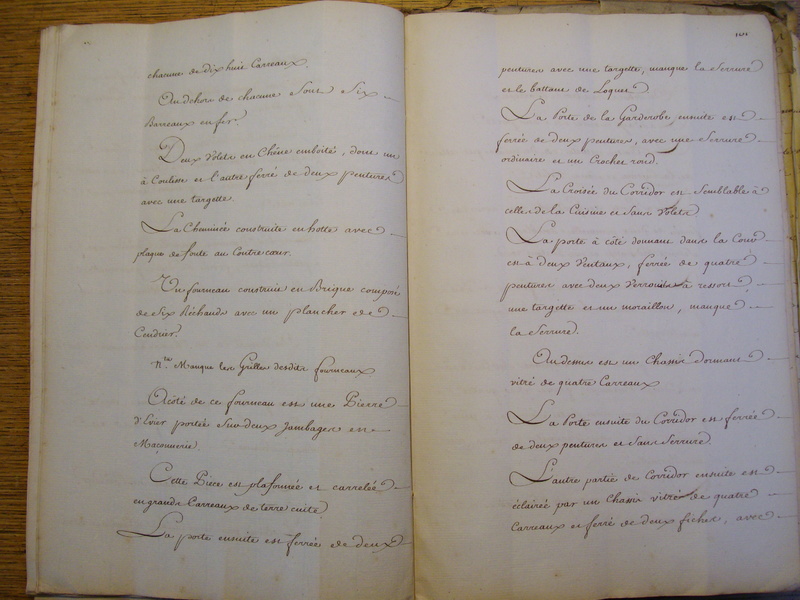 chacune de dix huit Carreaux.
Au dehors de chacune Sont Six
Barreaux en fer.
Deux Volets en Chêne emboité, dont un
à Coulisse et l'autre ferré de deux pentures
avec une targette.
La Cheminée construite en hotte avec
plaque de fonte au Contrecœur.
Un fourneau construit en Brique composé
de Six Réchauds avec un plancher de
Cendrier.
Nta. Manque les Grilles desdits fourneaux
Acôté de ce fourneau est une Pierre
d'Evier portée Sur deux Jambages en
Maçonnerie.
Cette Pièce est plafonnée et carrelée
en grands Carreaux de terre cuite
La porte ensuite est ferrée de deux
pentures avec une targette, manque la Serrure
et le battant de Loquet
La Porte de la Garderobe ensuite est
ferrée de deux pentures, avec une Serrure
ordinaire et un Crochet rond.
La Croisée du Corridor est Semblable à
celles de la Cuisine et Sans Volets
La porte à côté donnant dans la Cour
est à deux Ventaux, ferrée de quatre
pentures avec deux Verrouils à ressort,
une targette et un moraillon, manque
la Serrure.
Au dessus est un Chassis dormant
vitré de quatre Carreaux
La Porte ensuite du Corridor est ferrée
de deux pentures et Sans Serrure
L'autre partie de Corridor ensuite est
éclairée par un Chassis vitré de quatre
Carreaux et ferré de deux fiches, avec